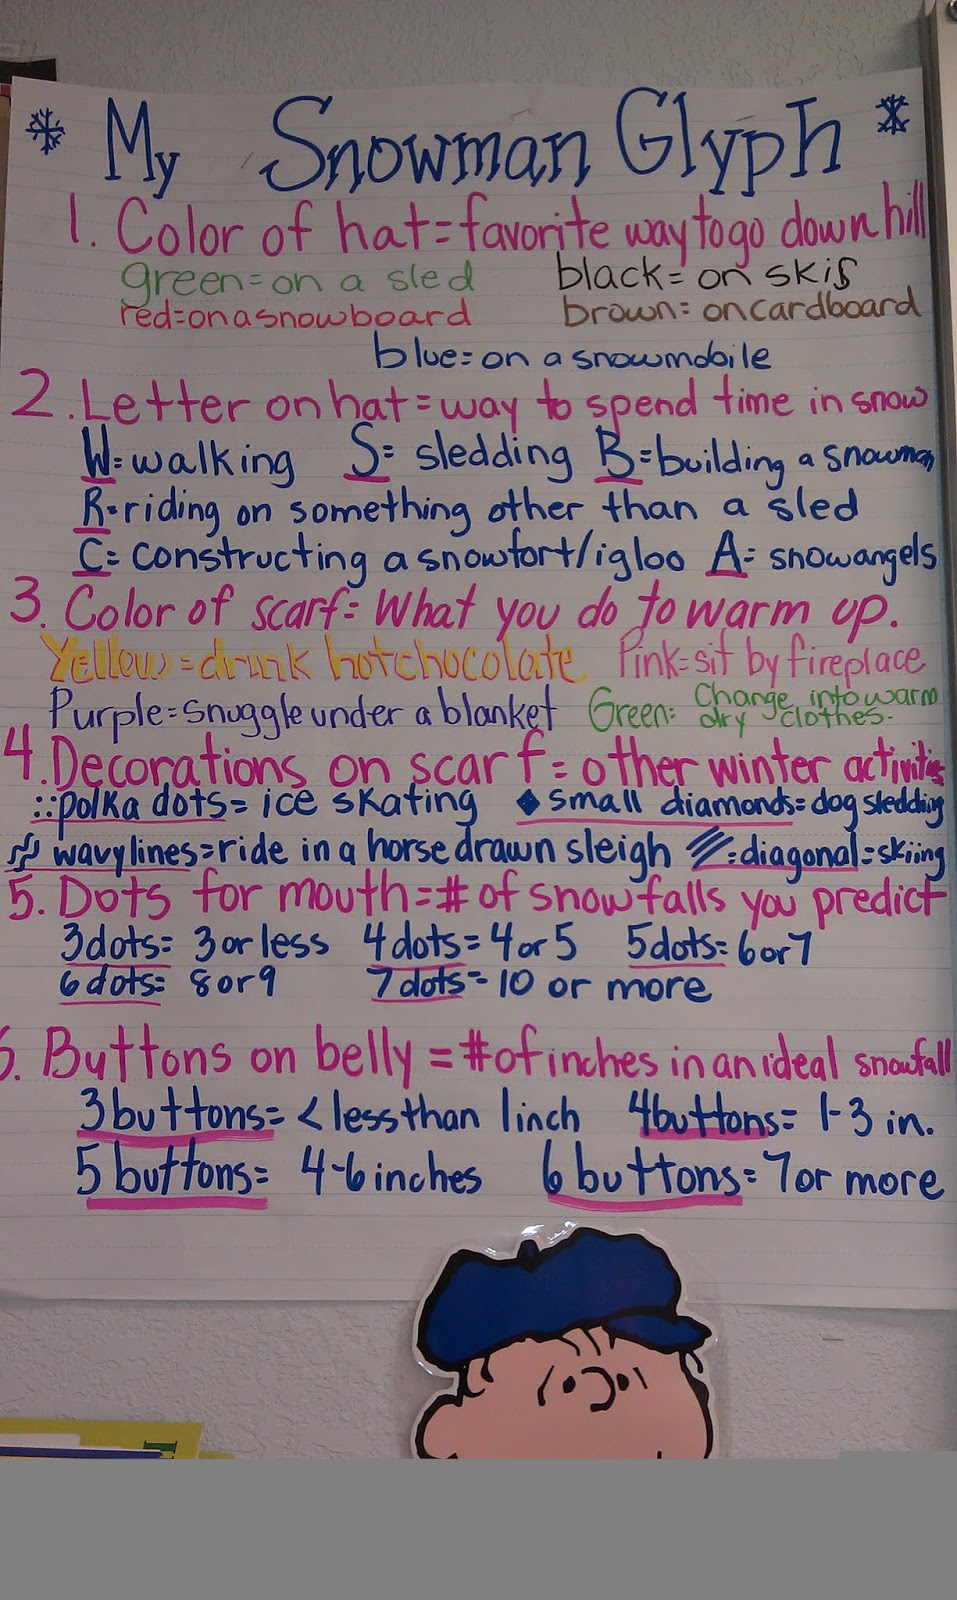 My Snowman Glyph
1. Color of hat = favorite way to go down hill
green = on a sled black = on skis
red = on a snowboard brown = on cardboard
blue = on a snowmobile
2. Letter on hat = way to spend time in snow
W = walking S = sledding B = building a snowman
R = riding on something other than a sled
C = constructing a snowfort/igloo A = snowangels
3. Color of scarf = What you do to warm up.
Yellow = drink hot chocolate Pink = sit by fireplace
Purple = snuggle under a blanket Green = Change into warm
dry clothes.
4. Decorations on scarf = other winter activities
:: polka dots = ice skating ◆ small diamonds = dog sledding
wavy lines = ride in a horse drawn sleigh = diagonal = skiing
5. Dots for mouth = # of snowfalls you predict
3 dots = 3 or less 4 dots = 4 or 5 5 dots = 6 or 7
6 dots = 8 or 9 7 dots = 10 or more
6. Buttons on belly = # of inches in an ideal snowfall
3 buttons = < less than 1 inch 4 buttons = 1-3 in.
5 buttons = 4-6 inches 6 buttons = 7 or more